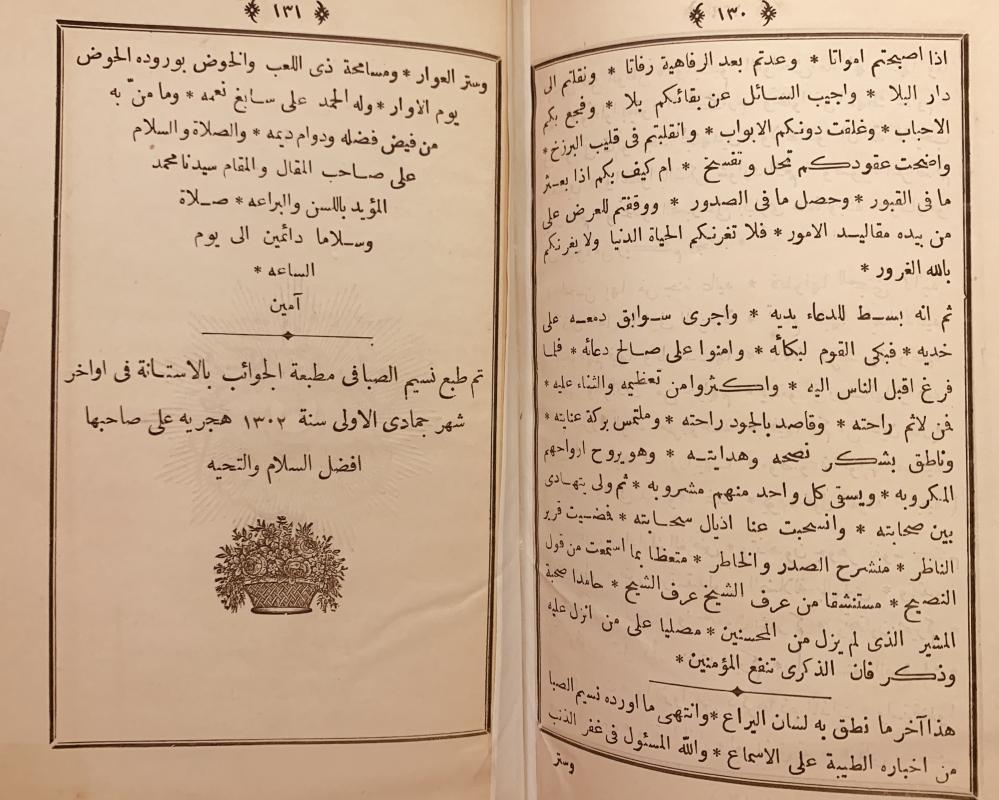 ١٣٠
اذا اصبحتم امواتا * وعدتم بعد الرفاهية رفاتا * ونقلتم الى
دار البلا * واجيب السائل عن بقائكم بلا * وفجع بكم
الاحباب * وغلقت دونكم الابواب * وانقلبتم فى قليب البرزخ *
واضحت عقودكم تحل وتفسخ * ام كيف بكم اذا بعثر
ما فى القبور * وحصل ما فى الصدور * ووقفتم للعرض على
من بيده مقاليد الامور * فلا تغرنكم الحياة الدنيا ولا يغرنكم
بالله الغرور *
ثم انه بسط للدعاء يديه * واجرى سوابق دمعه على
خديه * فبكى القوم لبكائه * وامنوا على صالح دعائه * فلما
فرغ اقبل الناس اليه * واكثروا من تعظيمه والثناء عليه *
فمن لاثم راحته * وقاصد بالجود راحته * وملتمس بركة عنايته *
وناطق بشكر نصحه وهدايته * وهو يروح ارواحهم
المكروبه * ويسقى كل واحد منهم مشروبه * ثم ولى يتهادى
بين صحابته * وانسحبت عنا اذيال سحابته * فمضيت قرير
الناظر * منشرح الصدر والخاطر * متعظا بما استمعت من قول
النصيح * مستنشقا من عرف الشيخ عرف الشيح * حامدا صحبة
المشير الذى لم يزل من المحسنين * مصليا على من انزل عليه
وذكر فان الذكرى تنفع المؤمنين *
هذا آخر ما نطق به لسان اليراع * وانتهى ما اورده نسيم الصبا
من اخباره الطيبة على الاسماع * والله المسئول فى غفر الذنب
وستر
١٣١
وستر العوار * ومسامحة ذى اللعب والخوض بوروده الحوض
يوم الاوار * وله الحمد على سابغ نعمه * وما منّ به
من فيض فضله ودوام ديمه * والصلاة والسلام
على صاحب المقال والمقام سيدنا محمد
المؤيد باللسن والبراعه * صلاة
وسلاما دائمين الى يوم
الساعه *
آمين
تم طبع نسيم الصبا فى مطبعة الجوائب بالاستانة فى اواخر
شهر جمادى الاولى سنة ١٣٠٢ هجريه على صاحبها
افضل السلام والتحيه